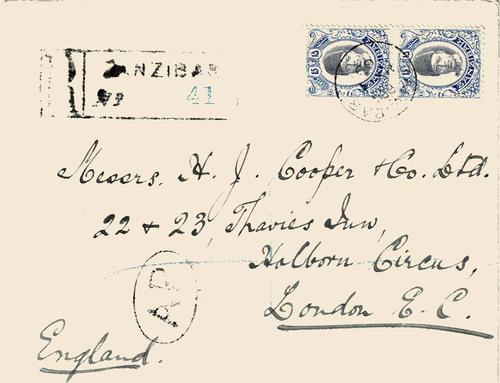 ZANZIBAR
No 41
ZANZIBAR ZANZIBAR
Messrs. H. J. Cooper & Co. Ltd.
22 & 23, Thavies Inn,
Holborn Circus,
London E. C.
AR
England.